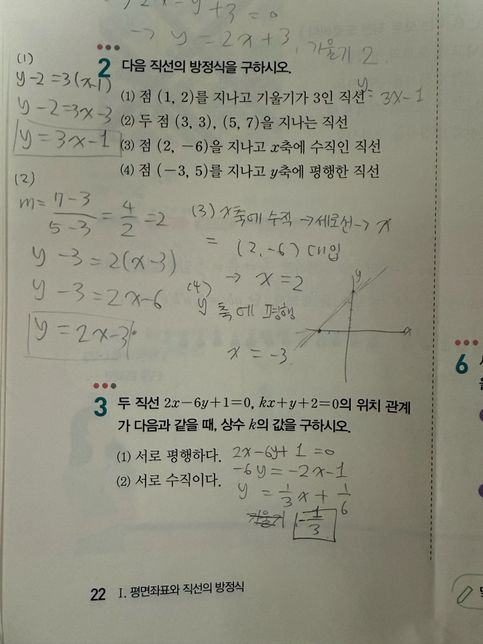 2x-y+3=0
→ y=2x+3, 기울기 2
2 다음 직선의 방정식을 구하시오.
(1) 점 (1, 2)를 지나고 기울기가 3인 직선 y=3x-1
(2) 두 점 (3, 3), (5, 7)을 지나는 직선
(3) 점 (2, -6)을 지나고 x축에 수직인 직선
(4) 점 (-3, 5)를 지나고 y축에 평행한 직선
(1)
y-2=3(x-1)
y-2=3x-3
y=3x-1
(2)
m=7-3/5-3=4/2=2
y-3=2(x-3)
y-3=2x-6
y=2x-3
(3) x축에 수직→세로선→x
= (2,-6) 대입
→ x=2
(4)
y축에 평행
x=-3
y
x
3 두 직선 2x-6y+1=0, kx+y+2=0의 위치 관계
가 다음과 같을 때, 상수 k의 값을 구하시오.
(1) 서로 평행하다. 2x-6y+1=0
(2) 서로 수직이다. -6y=-2x-1
y=1/3x+1/6
기울기 -1/3
6
22 I. 평면좌표와 직선의 방정식